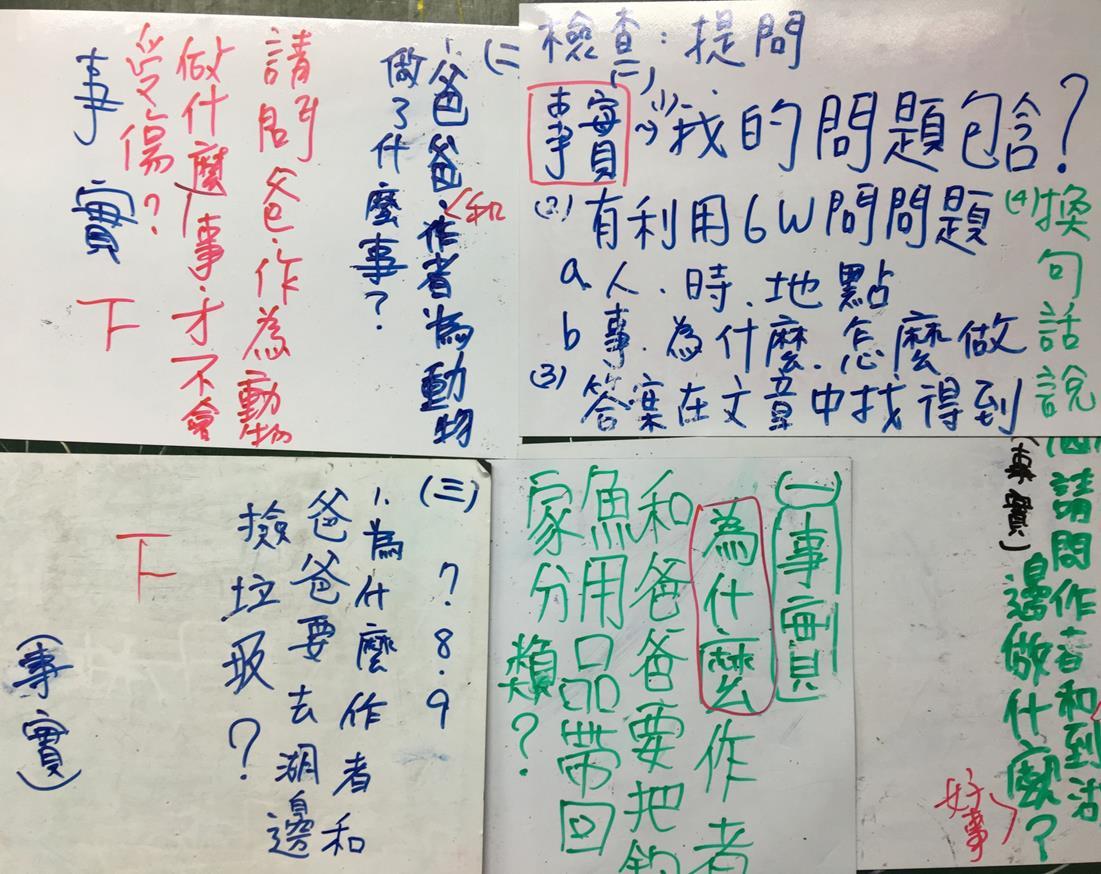 (二
爸爸、作者為動物
和
做了什麼事？
請問爸爸、作為動物
做什麼事才不會
受傷？
事實
下
檢查：提問
(一)
事實
(1)我的問題包含？
(2)有利用6W問問題
a.人、時、地點
b 事、為什麼、怎麼做
(3)答案在文章中找得到
(4)換句話說
(三) 7.8.9
1.為什麼作者和
爸爸要去湖邊
撿垃圾？
下
(事實)
(一)事實
為什麼作者
和爸爸要把釣
魚用品帶回
家分類？
請問作者和到湖
邊做什麼？
(事實)
好事